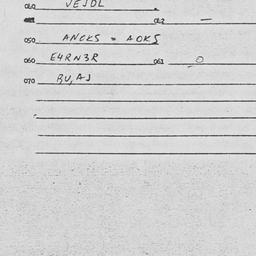 040 VEJDL
042 —
050 ANCKS = AOKS
060 E4RN3R 061 O
070 BU, AJ